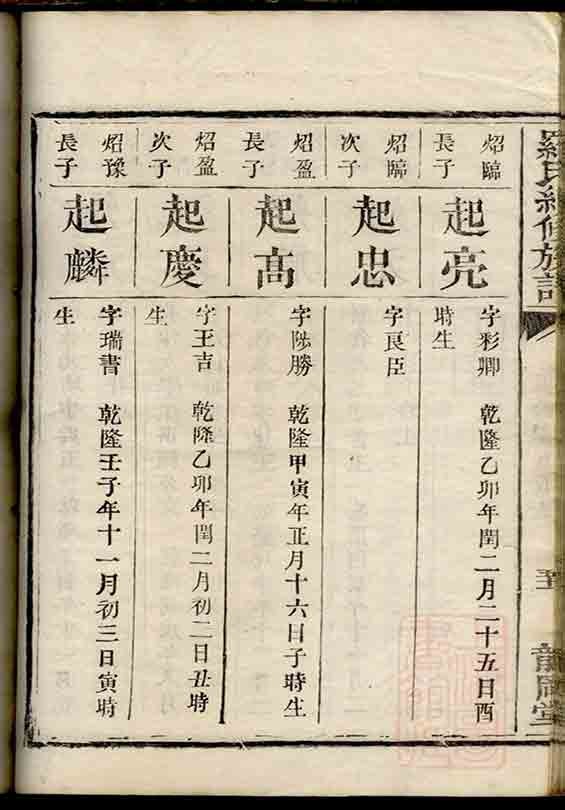 羅氏續修族譜
五
炤臨
長子
起亮
字彩卿 乾隆乙卯年閏二月二十五日酉
時生
炤臨
次子
起忠
字良臣
炤盈
長子
起高
字陟勝 乾隆甲寅年正月十六日子時生
炤盈
次子
起慶
字王吉 乾隆乙卯年閏二月初二日丑時
生
炤豫
長子
起麟
字瑞書 乾隆壬子年十一月初三日寅時
生